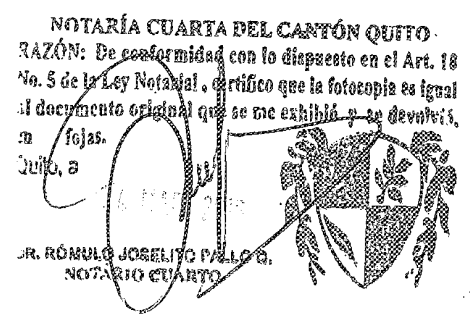 NOTARÍA CUARTA DEL CANTÓN QUITO
RAZÓN: De conformidad con lo dispuesto en el Art. 18
No. 5 de la Ley Notarial, certifico que la fotocopia es igual
al documento original que se me exhibió y se devolvió,
en fojas.
Quito, a
DR. RÓMULO JOSELITO PALLO Q.
NOTARIO CUARTO